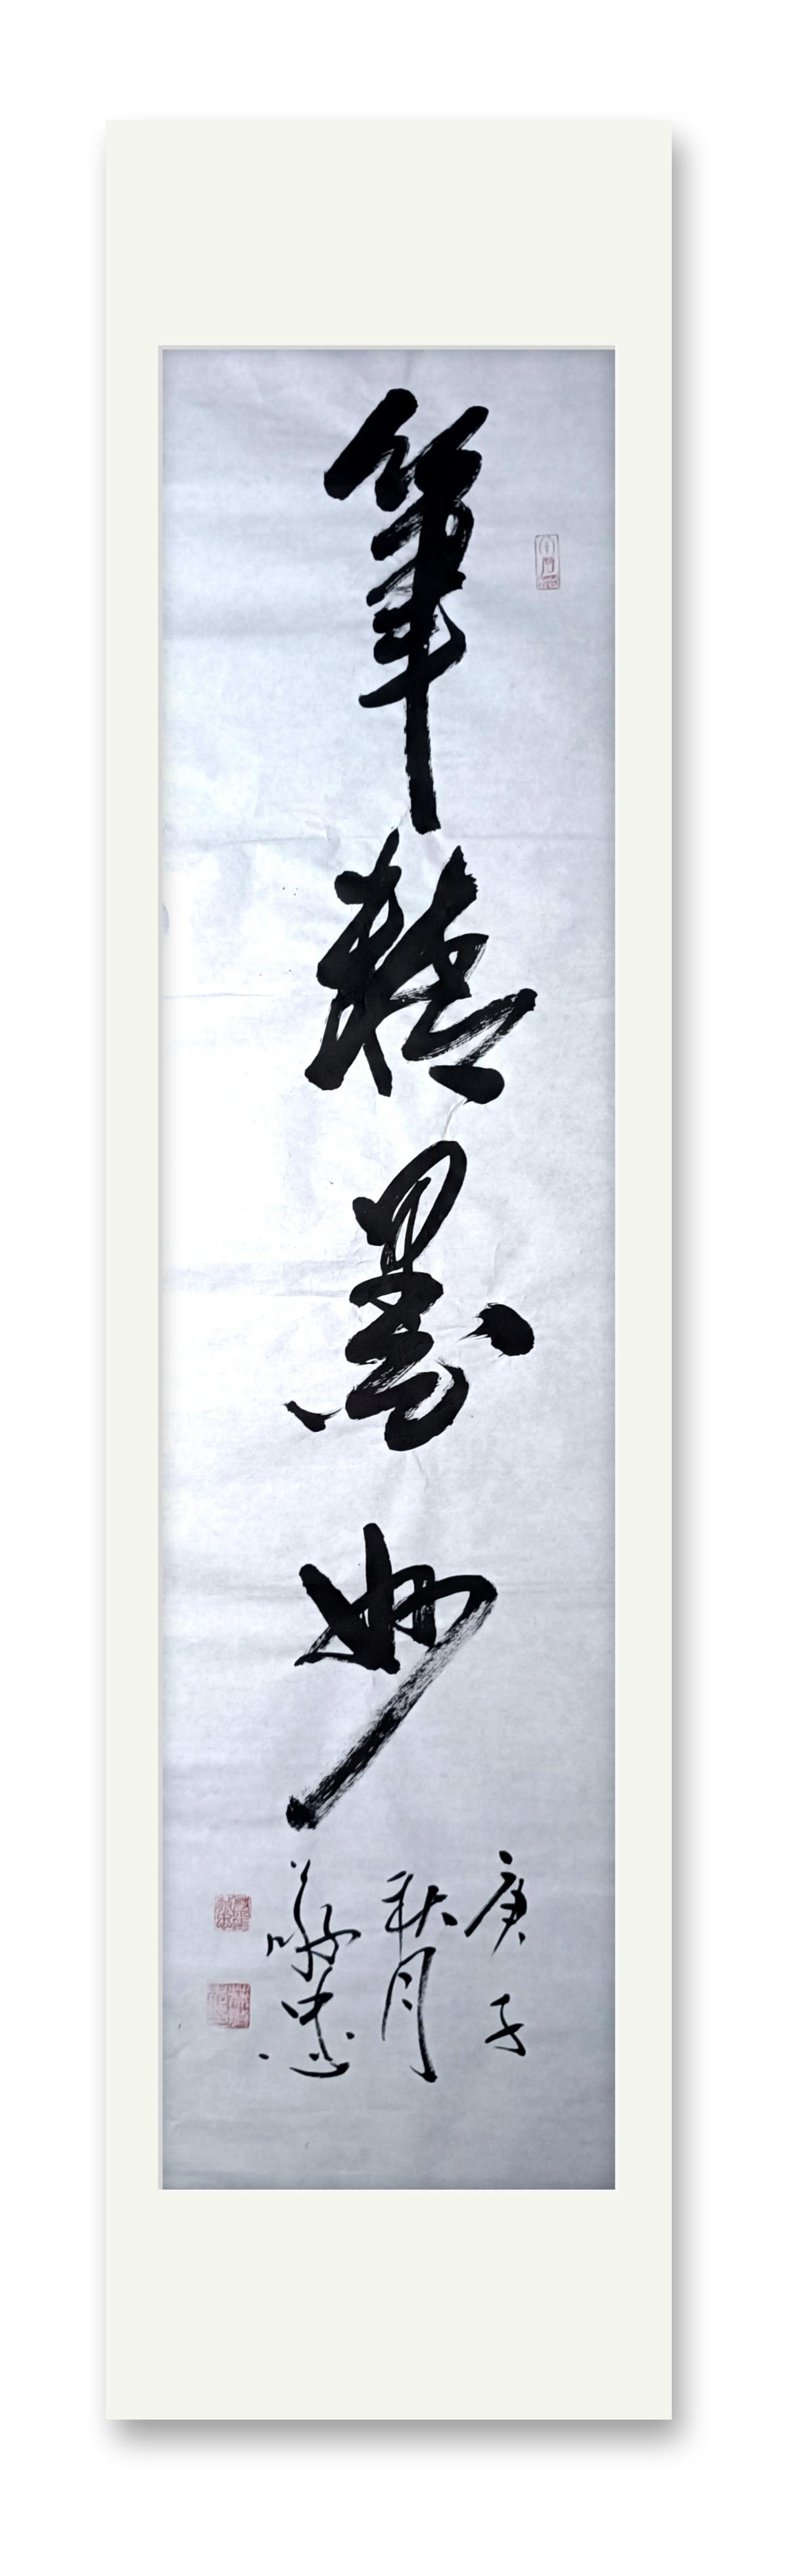 筆精墨妙
庚子
秋月